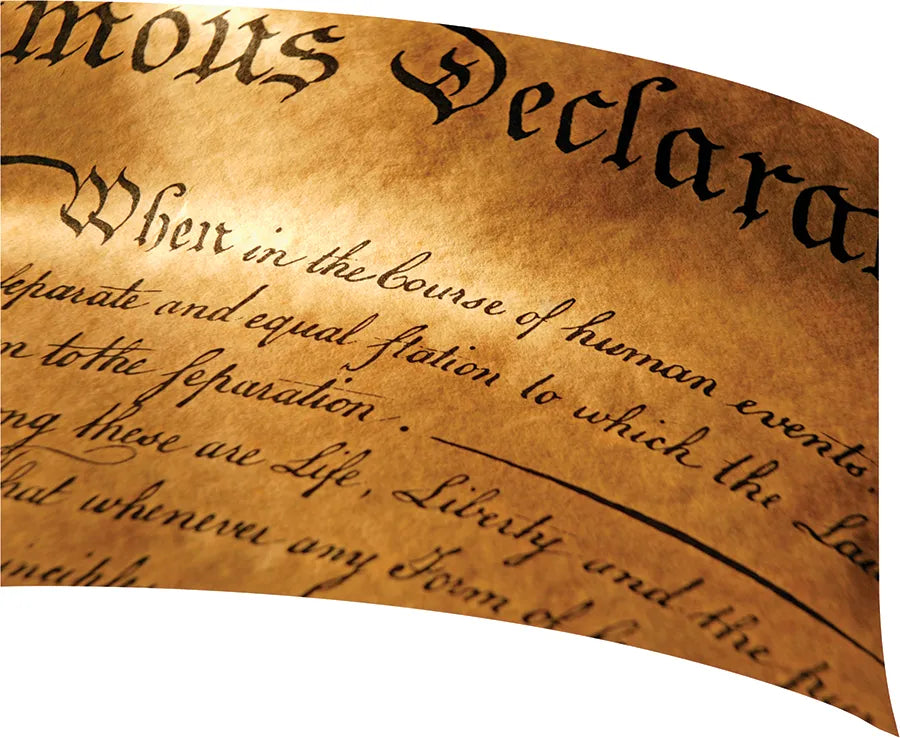 mous Declara
When in the Course of human events,
separate and equal station to which the Law
n to the separation.
ng these are Life, Liberty and the pur
hat whenever any Form of
inciple